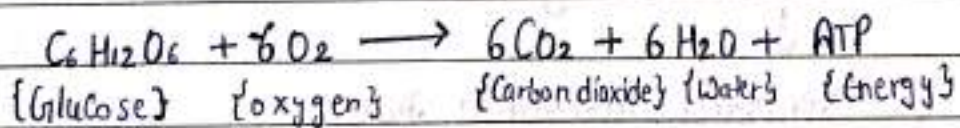 C6 H12 O6 + 6 O2 ⟶ 6 CO2 + 6 H2O + ATP
{Glucose} {oxygen} {Carbondioxide} {Water} {Energy}